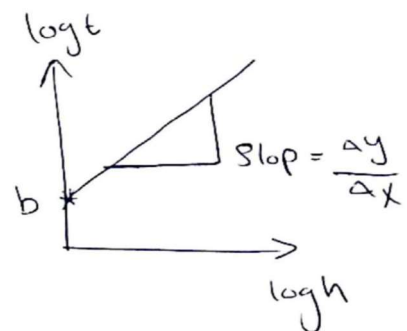 logt
b
Slop = Δy / Δx
logh